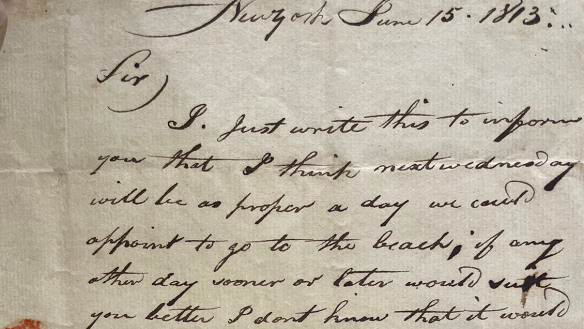 Newyork June 15. 1813.
Sir)
I. Just write this to inform
you that I think next wednesday
will be as proper a day we could
appoint to go to the beach; if any
other day sooner or later would suit
you better I dont know that it would